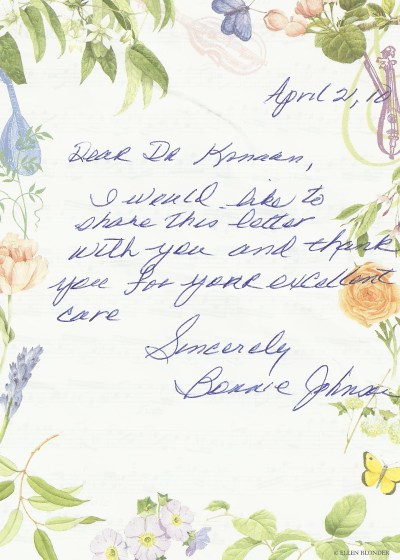 April 21, 10
Dear Dr Kanaan,
I would like to
share this letter
with you and thank
you for your excellent
care
Sincerely
Bonnie Johnson
© ELLEN BLONDER